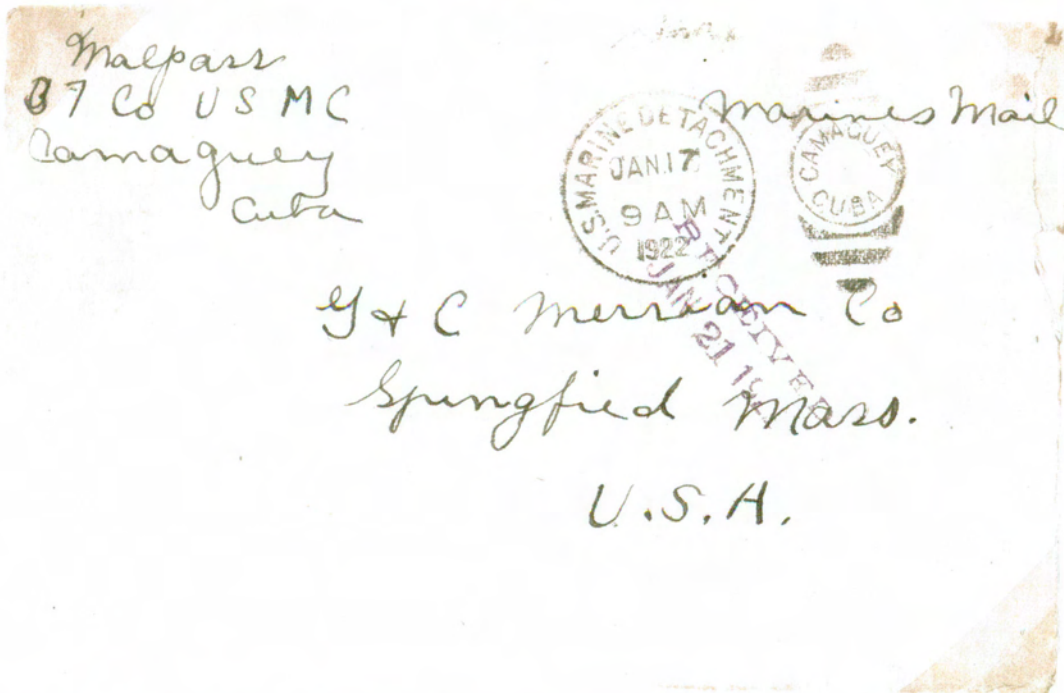 Malpass
37 Co U S M C
Camaguey
Cuba
Marines Mail
U.S. MARINE DETACHMENT
JAN. 17
9 AM
1922
CAMAGUEY
CUBA
RECEIVED
JAN 21
G & C Merriam Co
Springfied Mass.
U.S.A.